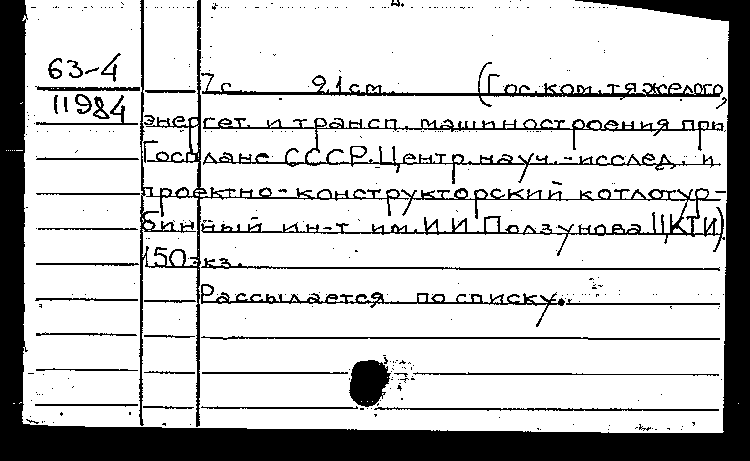 63-4
11984
7 с. 21 см. (Гос. ком. тяжелого,
энергет. и трансп. машиностроения при
Госплане СССР. Центр. науч.-исслед. и
проектно-конструкторский котлотур-
бинный ин-т им. И.И. Ползунова ЦКТИ).
150 экз.
Рассылается по списку.